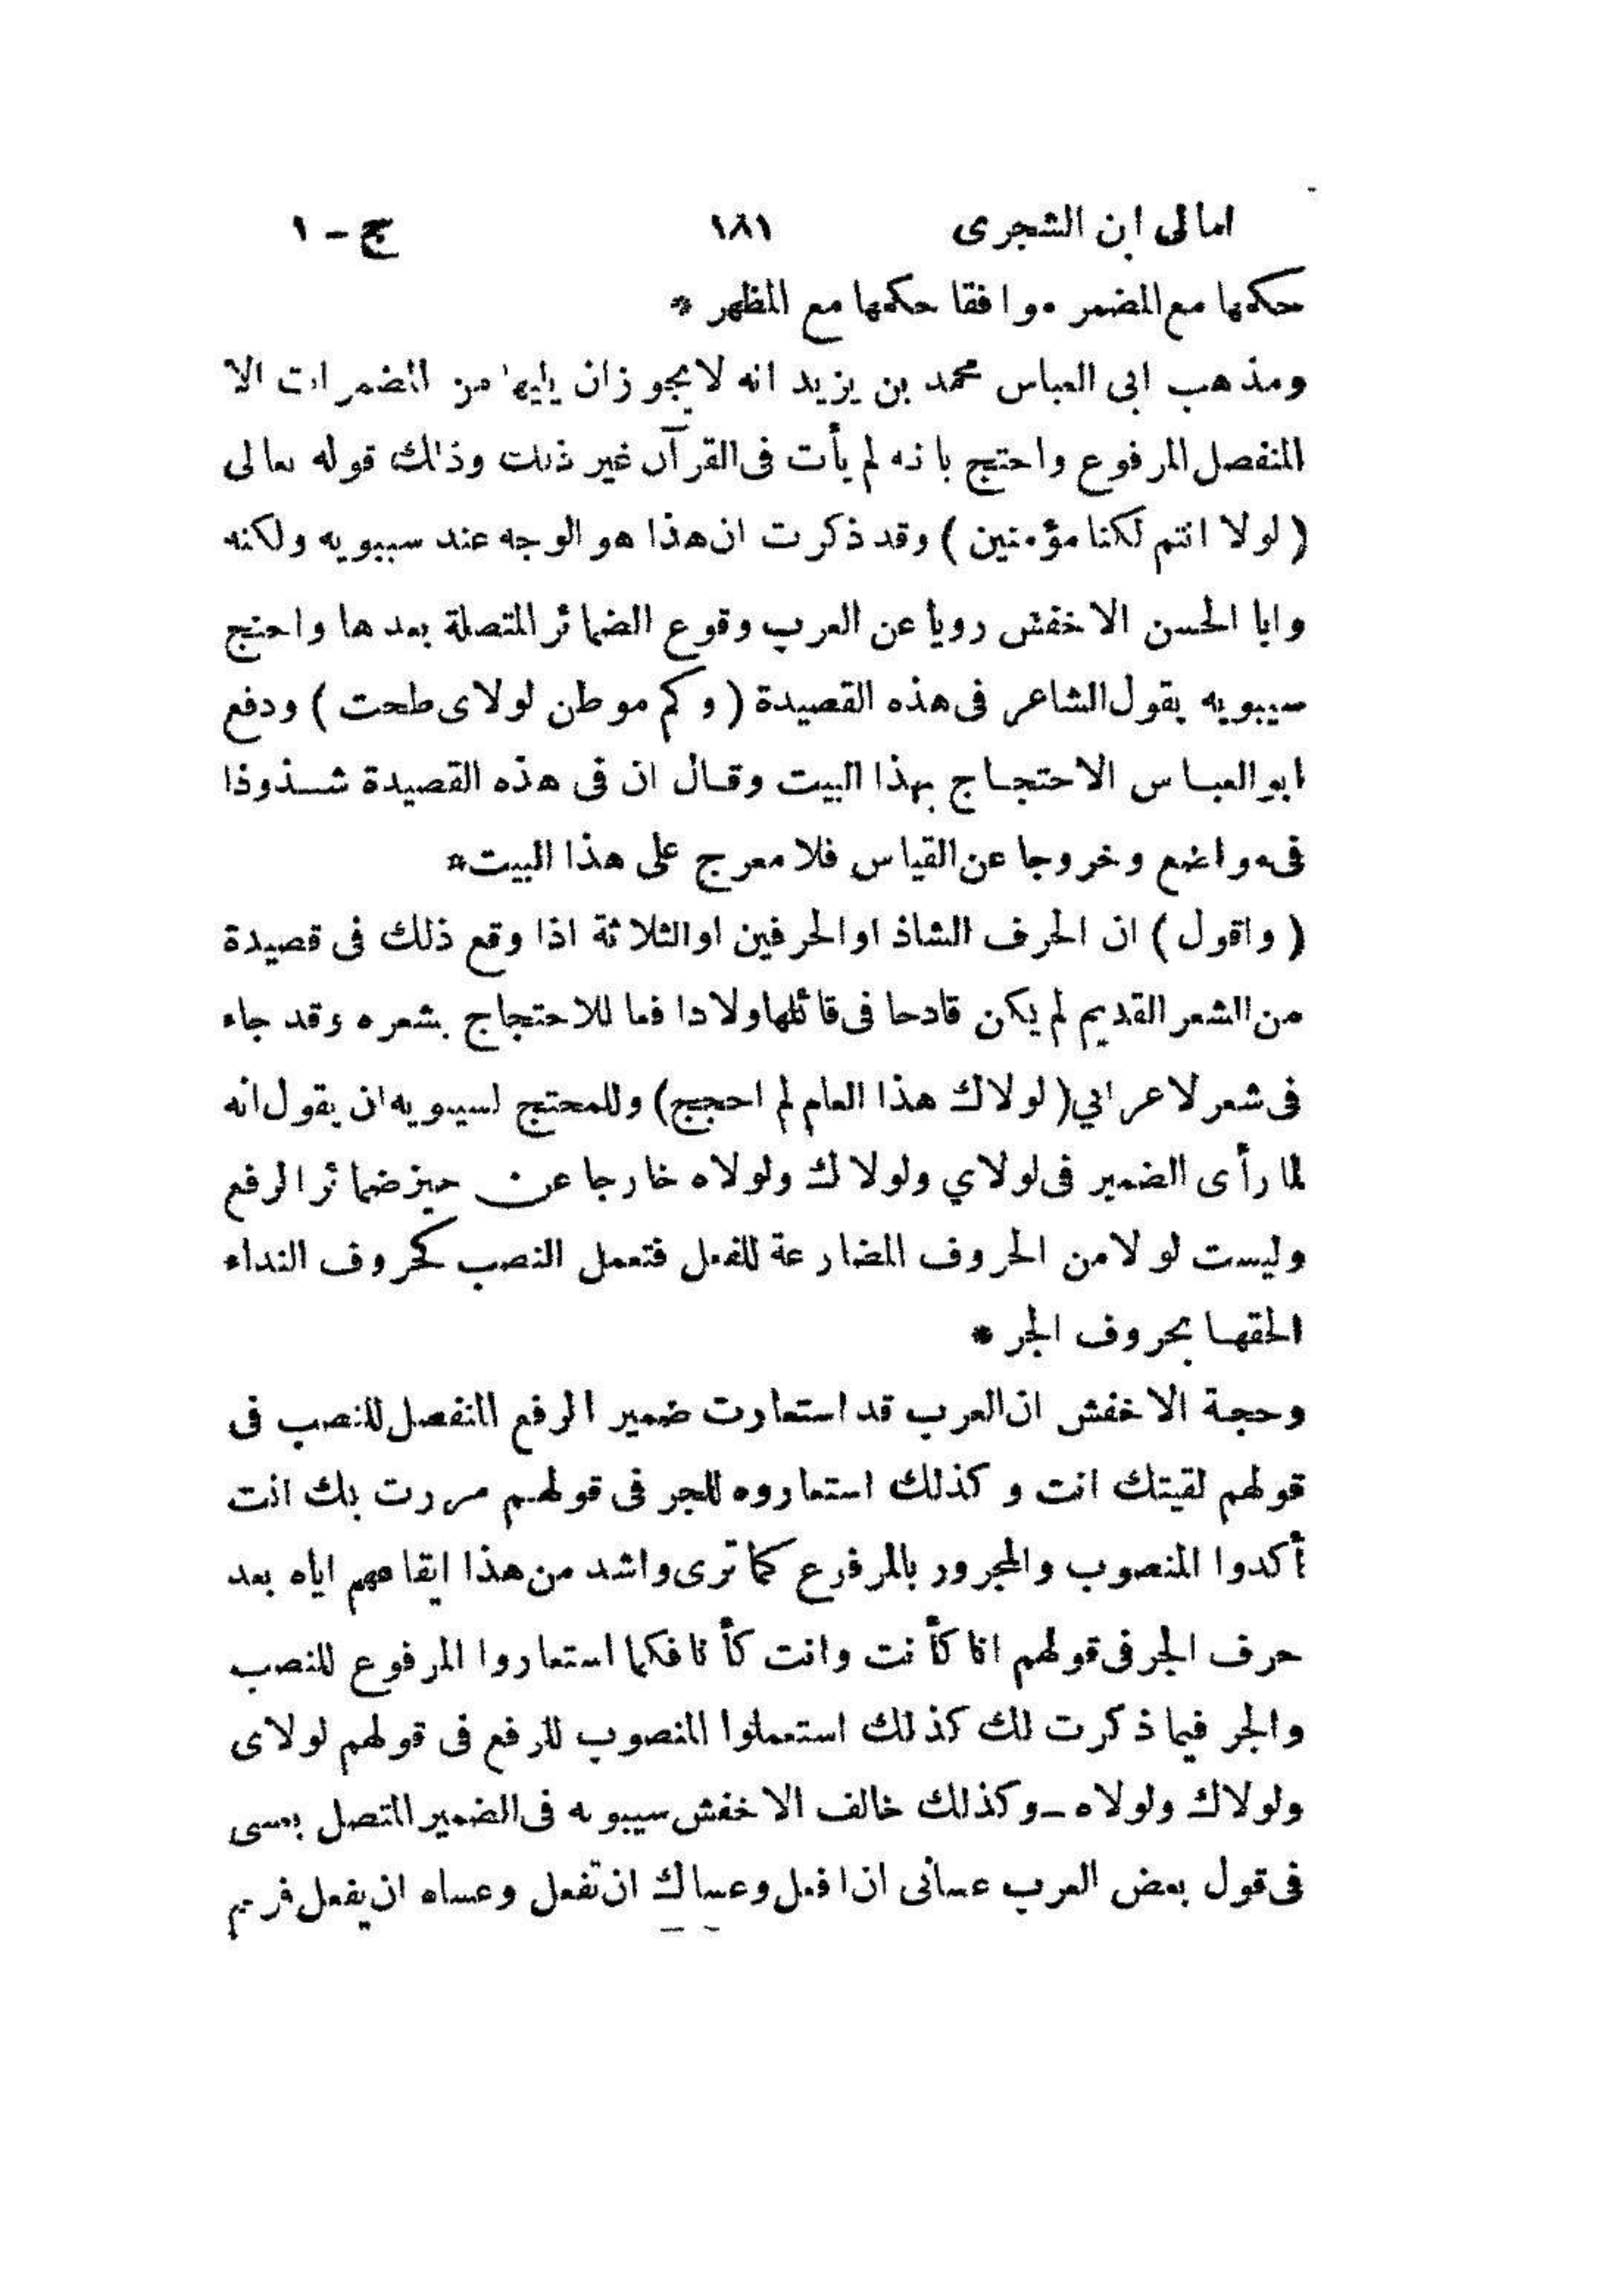 امالى ابن الشجرى ١٨١ ج - ١
حكمها مع المضمر موافقا حكمها مع المظهر *
ومذهب ابى العباس محمد بن يزيد انه لا يجوز ان يليها من المضمرات الا
المنفصل المرفوع واحتج بانه لم يأت فى القرآن غير ذلك وذلك قوله تعالى
( لولا انتم لكنا مؤمنين ) وقد ذكرت ان هذا هو الوجه عند سيبويه ولكنه
وابا الحسن الاخفش رويا عن العرب وقوع الضمائر المتصلة بعدها واحتج
سيبويه بقول الشاعر فى هذه القصيدة ( وكم موطن لولاى طحت ) ودفع
ابو العباس الاحتجاج بهذا البيت وقال ان فى هذه القصيدة شذوذا
فى مواضع وخروجا عن القياس فلا معرج على هذا البيت *
( واقول ) ان الحرف الشاذ او الحرفين او الثلاثة اذا وقع ذلك فى قصيدة
من الشعر القديم لم يكن قادحا فى قائلها ولا دافعا للاحتجاج بشعره وقد جاء
فى شعر لاعرابي ( لولاك هذا العام لم احجج ) وللمحتج لسيبويه ان يقول انه
لما رأى الضمير فى لولاي ولولاك ولولاه خارجا عن حيز ضمائر الرفع
وليست لولا من الحروف المضارعة للفعل فتعمل النصب كحروف النداء
الحقها بحروف الجر *
وحجة الاخفش ان العرب قد استعارت ضمير الرفع المنفصل للنصب فى
قولهم لقيتك انت وكذلك استعاروه للجر فى قولهم مررت بك انت
أكدوا المنصوب والمجرور بالمرفوع كما ترى واشد من هذا ايقاعهم اياه بعد
حرف الجر فى قولهم انا كأنت وانت كأنا فكما استعاروا المرفوع للنصب
والجر فيما ذكرت لك كذلك استعملوا المنصوب للرفع فى قولهم لولاى
ولولاك ولولاه - وكذلك خالف الاخفش سيبويه فى الضمير المتصل بعسى
فى قول بعض العرب عسانى ان افعل وعساك ان تفعل وعساه ان يفعل فزعم